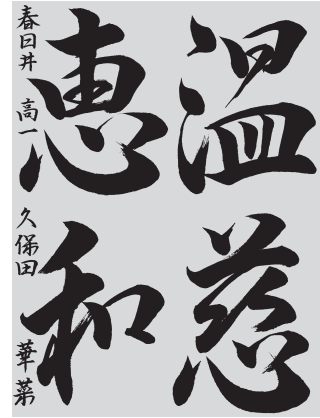 温慈
恵和
春日井 高一
久保田 華菜